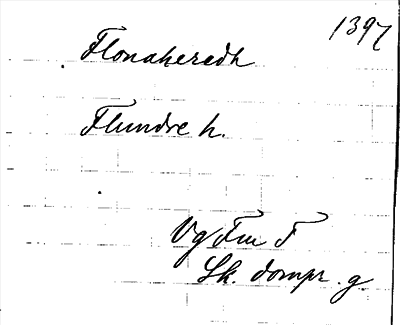 1397
Flonahæredh
Flundre h.
Vg Fm F
Sk. dompr. g